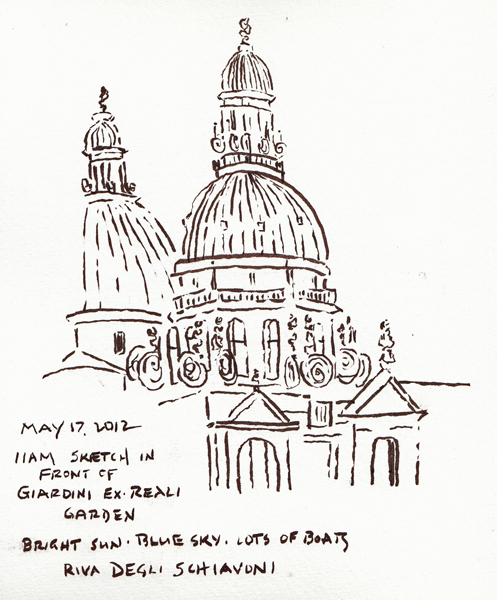 MAY 17, 2012
11AM SKETCH IN
FRONT OF
GIARDINI EX-REALI
GARDEN
BRIGHT SUN. BLUE SKY. LOTS OF BOATS
RIVA DEGLI SCHIAVONI